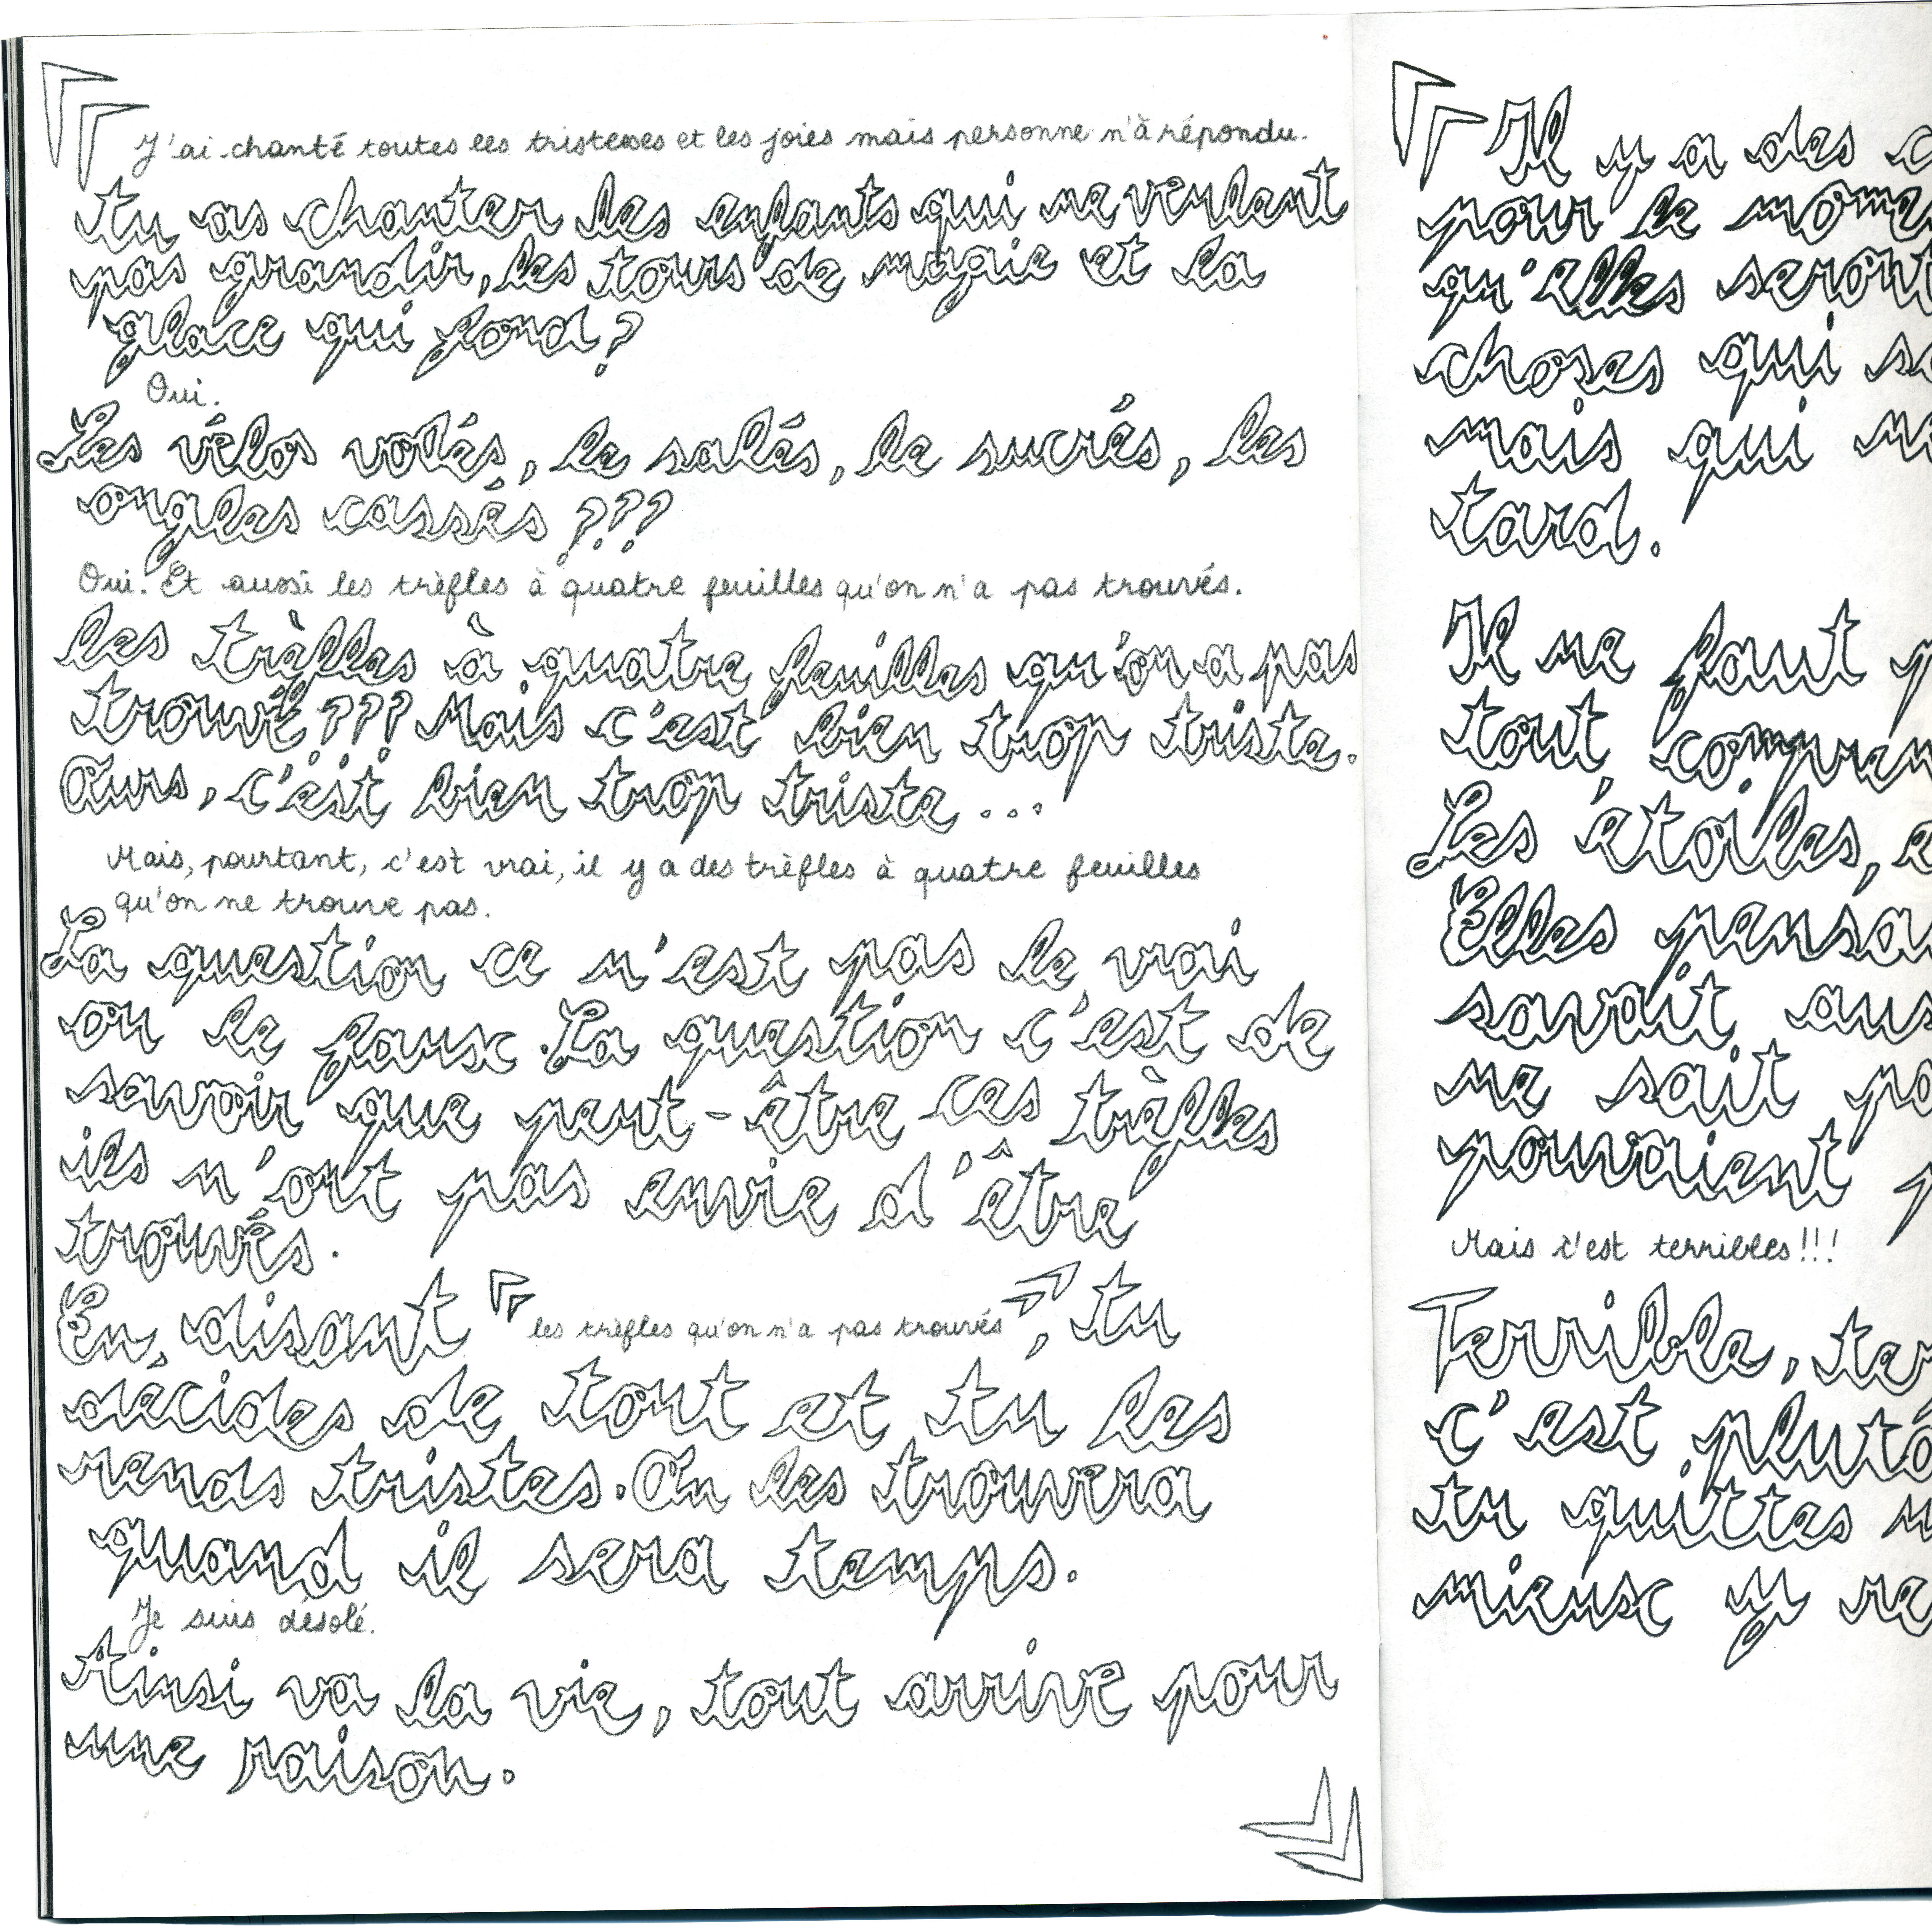 J'ai chanté toutes les tristesses et les joies mais personne n'à répondu.
tu as chanter les enfants qui ne veulent
pas grandir, les tours de magie et la
glace qui fond ?
Oui.
Les vélos volés, le salés, le sucrés, les
ongles cassés ???
Oui. Et aussi les trèfles à quatre feuilles qu'on n'a pas trouvés.
les trèfles à quatre feuilles qu'on a pas
trouvé ??? Mais c'est bien trop triste.
Ours, c'est bien trop triste ...
Mais, pourtant, c'est vrai, il y a des trèfles à quatre feuilles
qu'on ne trouve pas.
La question ce n'est pas le vrai
ou le faux. La question c'est de
savoir que peut-être ces trèfles
ils n'ont pas envie d'être
trouvés.
En disant « les trèfles qu'on n'a pas trouvés », tu
décides de tout et tu les
rends tristes. On les trouvera
quand il sera temps.
Je suis désolé.
Ainsi va la vie, tout arrive pour
une raison.
« Il y a des c
pour le mome
qu'elles seront
choses qui so
mais qui ne
tard.
Il ne faut p
tout compren
Les étoiles, e
Elles pensai
savait aus
ne sait pa
pouvaient p
Mais c'est terribles !!!
Terrible, ter
c'est plutô
tu quittes u
mieux y re